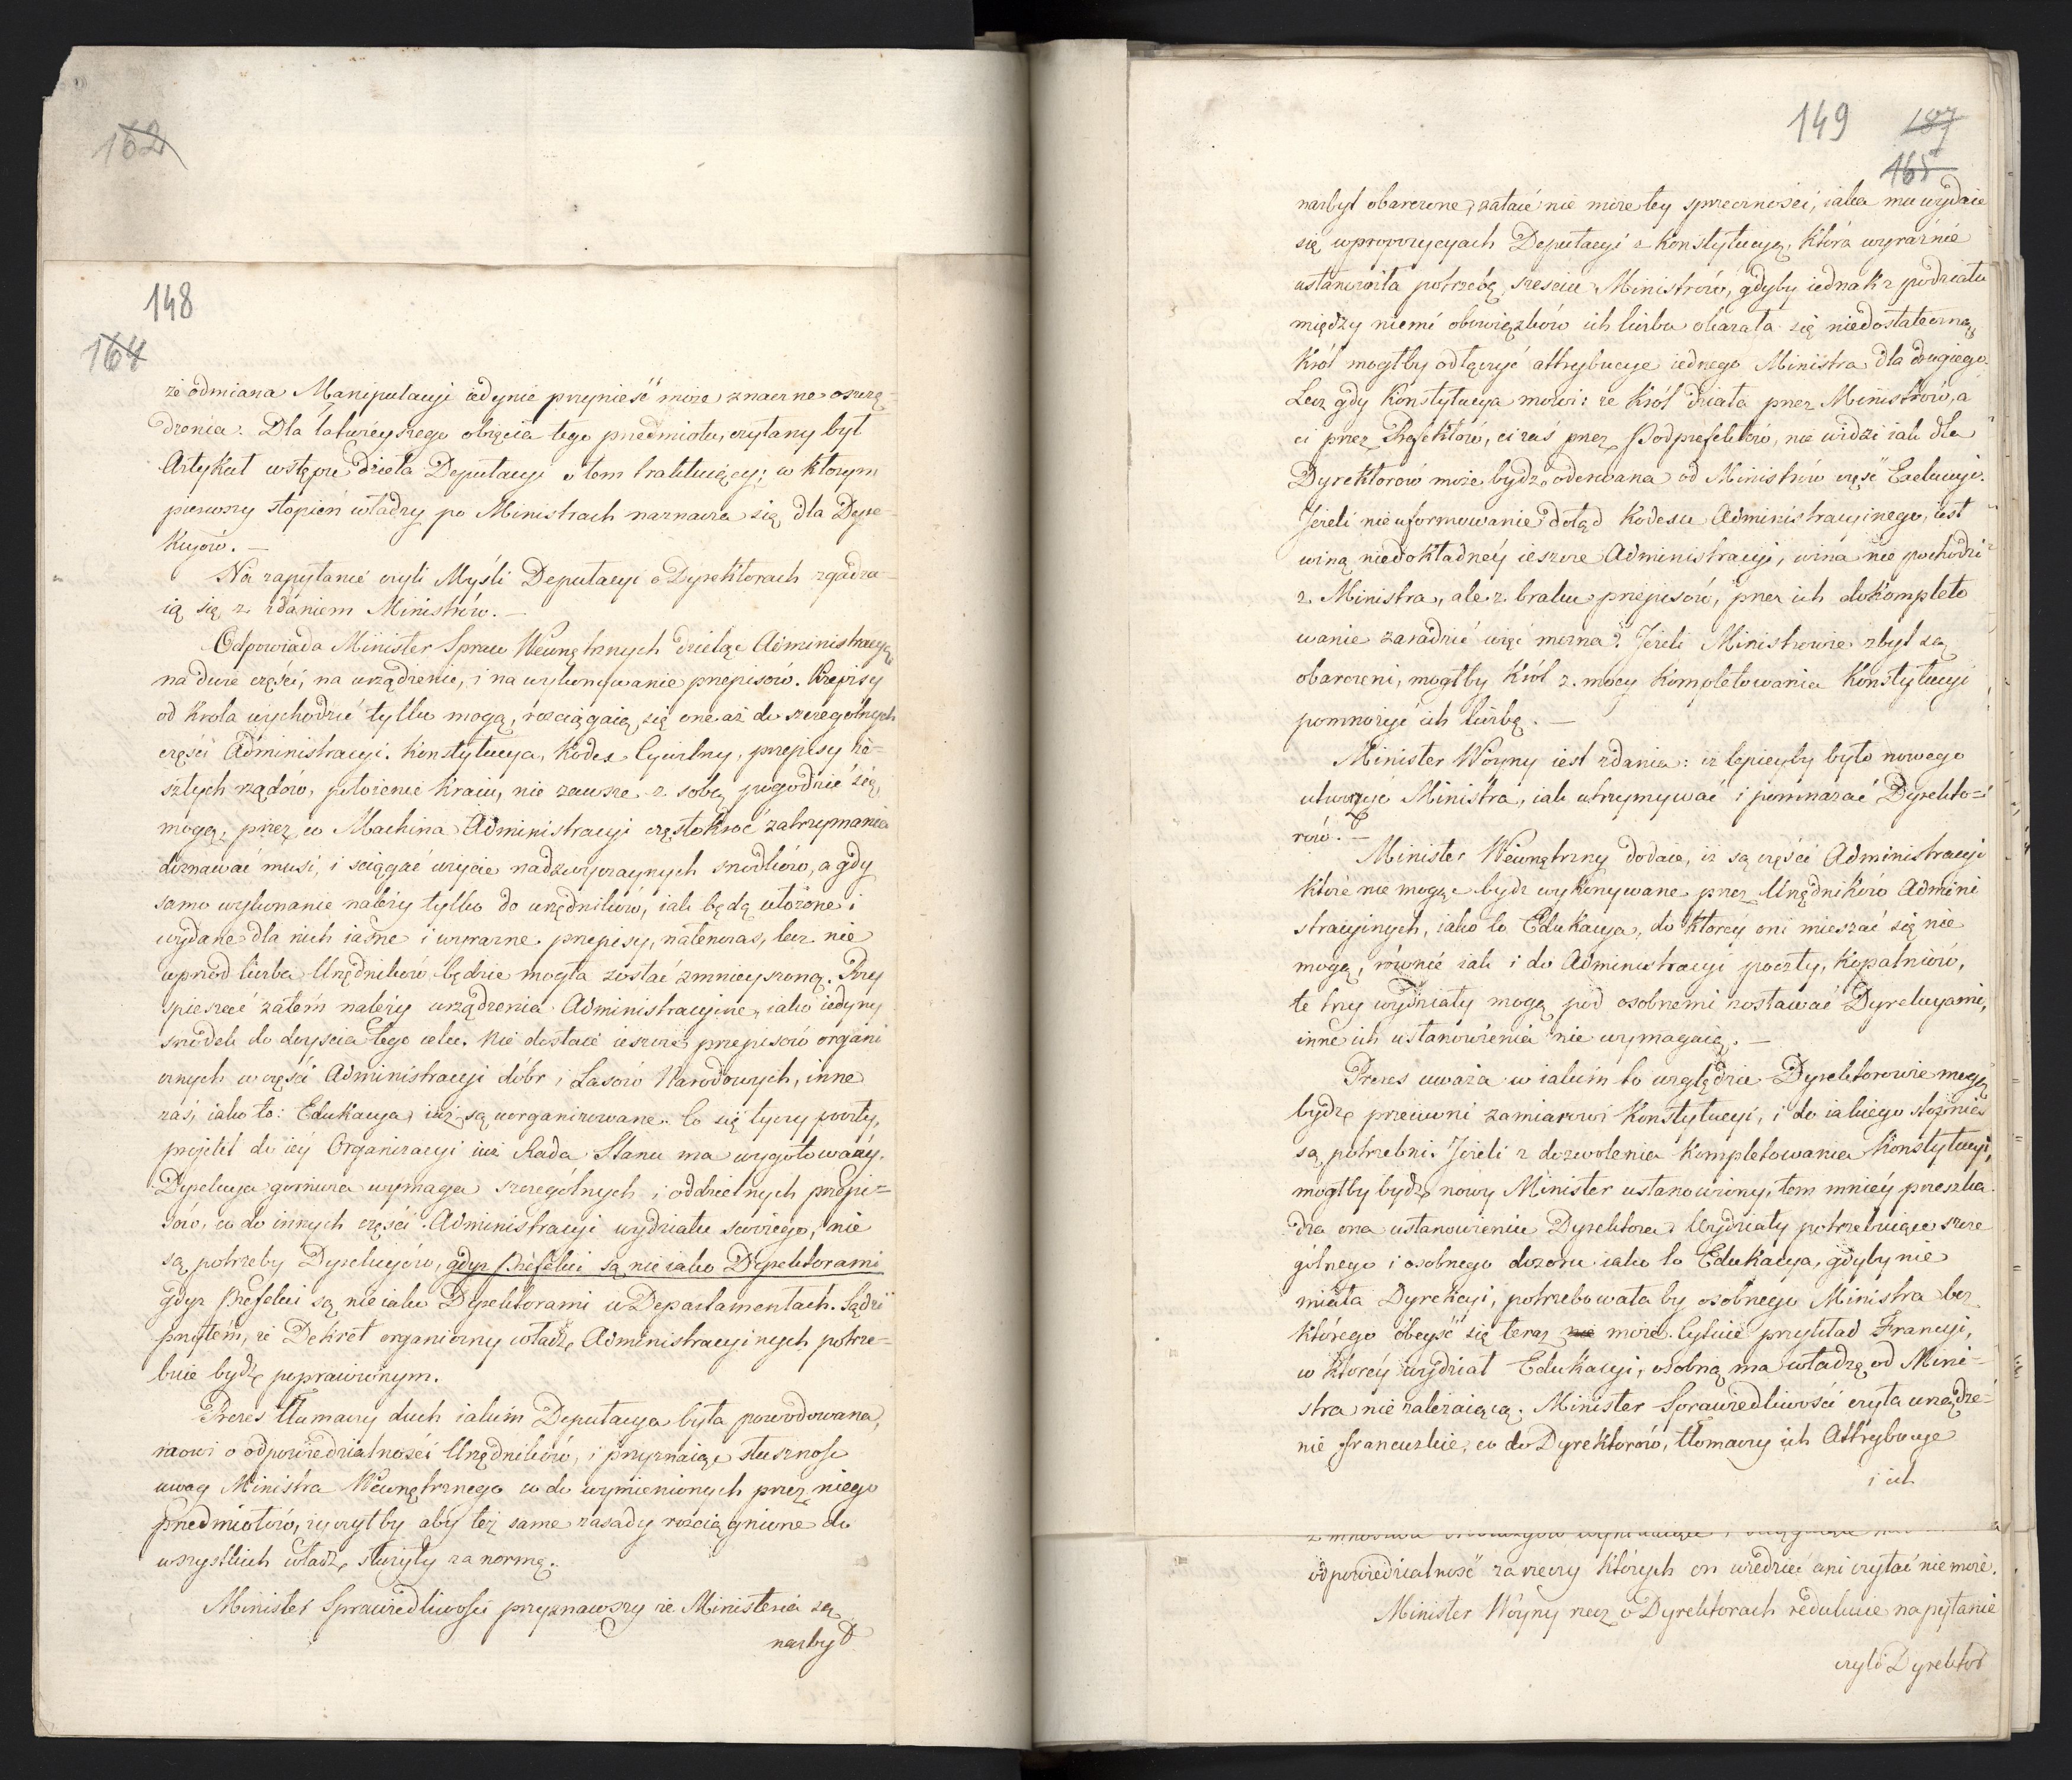 162
148
164
że odmiana Manipulacyi iedynie przynieść może znaczne oszczę-
dzenia. Dla łatwieyszego obięcia tego przedmiotu, czytany był
Artykuł wstępu dzieła Deputacyi o tem traktuiący; w którym
pierwszy stopień władzy po Ministrach naznacza się dla Dyre-
kcyów. —
Na zapytanie czyli Myśli Deputacyi o Dyrektorach zgadza-
ią się z zdaniem Ministrów. —
Odpowiada Minister Spraw Wewnętrznych dzieląc Administracyę
na dwie części, na urządzenie, i na wykonywanie przepisów. Przepisy
od Krola wychodzić tylko mogą, rozciągaią się one aż do szczegolnych
części Administracyi. Konstytucya, Kodex Cywilny, przepisy ze-
szłych rządów, położenie Kraiu, nie zawsze z sobą pogodzić się
mogą, przez co Machina Administracyi częstokroć zatrzymania
doznawać musi, i sciągać użycie nadzwyczaynych srodków, a gdy
samo wykonanie należy tylko do urzędników, iak będą ułożone i
wydane dla nich iasne i wyrazne przepisy, natenczas, lecz nie
wprzod liczba Urzędników będzie mogła zostać zmnieyszoną. Przy
spieszać zatem należy urządzenia Administracyine, iako iedyny
srodek do doyscia tego celu. Nie dostaie ieszcze przepisów organi
cznych w części Administracyi dóbr i Lasow Narodowych, inne
zaś, iako to: Edukacya, iuż są uorganizowane. Co się tyczy poczty,
projekt do iéy Organizacyi iuż Rada Stanu ma wygotowany.
Dyrekcya gornicza wymaga szczególnych i oddzielnych przepi-
sów, co do innych części Administracyi wydziału swoiego, nie
są potrzeby Dyrekcyów, gdyż Prefekci są nieiako Dyrektorami
gdyż Prefekci są nieiako Dyrektorami w Departamentach. Sądzi
przytem, że Dekret organiczny władz Administracyinych potrze-
buie bydź poprawionym.
Prezes tłumaczy duch iakim Deputacya była powodowana,
mowi o odpowiedzialności Urzędników, i przyznaiąc słuszność
uwag Ministra Wewnętrznego co do wymienionych przez niego
przedmiotów, życzyłby aby też same zasady rozciągnione do
wszystkich władz, służyły za normę.
Minister Sprawiedliwości przyznawszy że Ministeria są
nazbyt
149 187
165
nazbyt obarczone, zataić nie może tey sprzeczności, iaka mu wydaie
się w propozycyach Deputacyi z Konstytucyą, która wyraźnie
ustanowiła potrzebę szesciu Ministrów, gdyby iednak z podziału
między niemi obowiązków ich liczba okazała się niedostateczną,
Król mogłby odłączyć attrybucye iednego Ministra dla drugiego.
Lecz gdy Konstytucya mowi: że Król działa przez Ministrów, a
ci przez Prefektów, ci zaś przez Podprefektów, nie widzi iak dla
Dyrektorów może bydź oderwana od Ministrów część Exekucyi.
Jeżeli nieuformowanie dotąd Kodexu Administracyinego, iest
winą niedokładnéy ieszcze Administracyi, wina nie pochodzi
z Ministra, ale z braku przepisów, przez ich dokompleto
wanie zaradzić więc można. Jeżeli Ministrowie zbyt są
obarczeni, mogłby Król z mocy Kompletowania Konstytucyi
pomnożyć ich liczbę. —
Minister Woyny iest zdania: iż lepieyby było nowego
utworzyć Ministra, iak utrzymywać i pomnażać Dyrekto-
rów. —
Minister Wewnętrzny dodaie, iż są części Administracyi
które nie mogą bydz wykonywane przez Urzędników Admini
stracyinych, iako to Edukacya, do któréy oni mieszać się nie
mogą, równie iak i do Administracyi poczty, Kopalniów,
te trzy wydziały mogą pod osobnemi zostawać Dyrekcyami,
inne ich ustanowienia nie wymagaią. —
Prezes uważa w iakim to względzie Dyrektorowie mogą
bydź przeciwni zamiarowi Konstytucyi, i do iakiego stopnia
są potrzebni. Jeżeli z dozwolenia Kompletowania Konstytucyi,
mogłby bydź nowy Minister ustanowiony, tem mniéy przeszka
dza ona ustanowieniu Dyrektora. Wydziały potrzebuiące szcze
gólnego i osobnego dozoru iako to Edukacya, gdyby nie
miała Dyrekcyi, potrzebowała by osobnego Ministra bez
którego obeyść się teraz nie może. Cytuie przykład Francyi,
w któréy wydział Edukacyi, osobną ma władzę od Mini-
stra nie zależaiącą. Minister Sprawiedliwości czyta urządze-
nie francuzkie, co do Dyrektorów, tłomaczy ich Attrybucye
i ich
odpowiedzialność za rzeczy których on wiedzieć ani czytać nie może.
Minister Woyny rzecz o Dyrektorach redukuie na pytanie
czyli Dyrektor